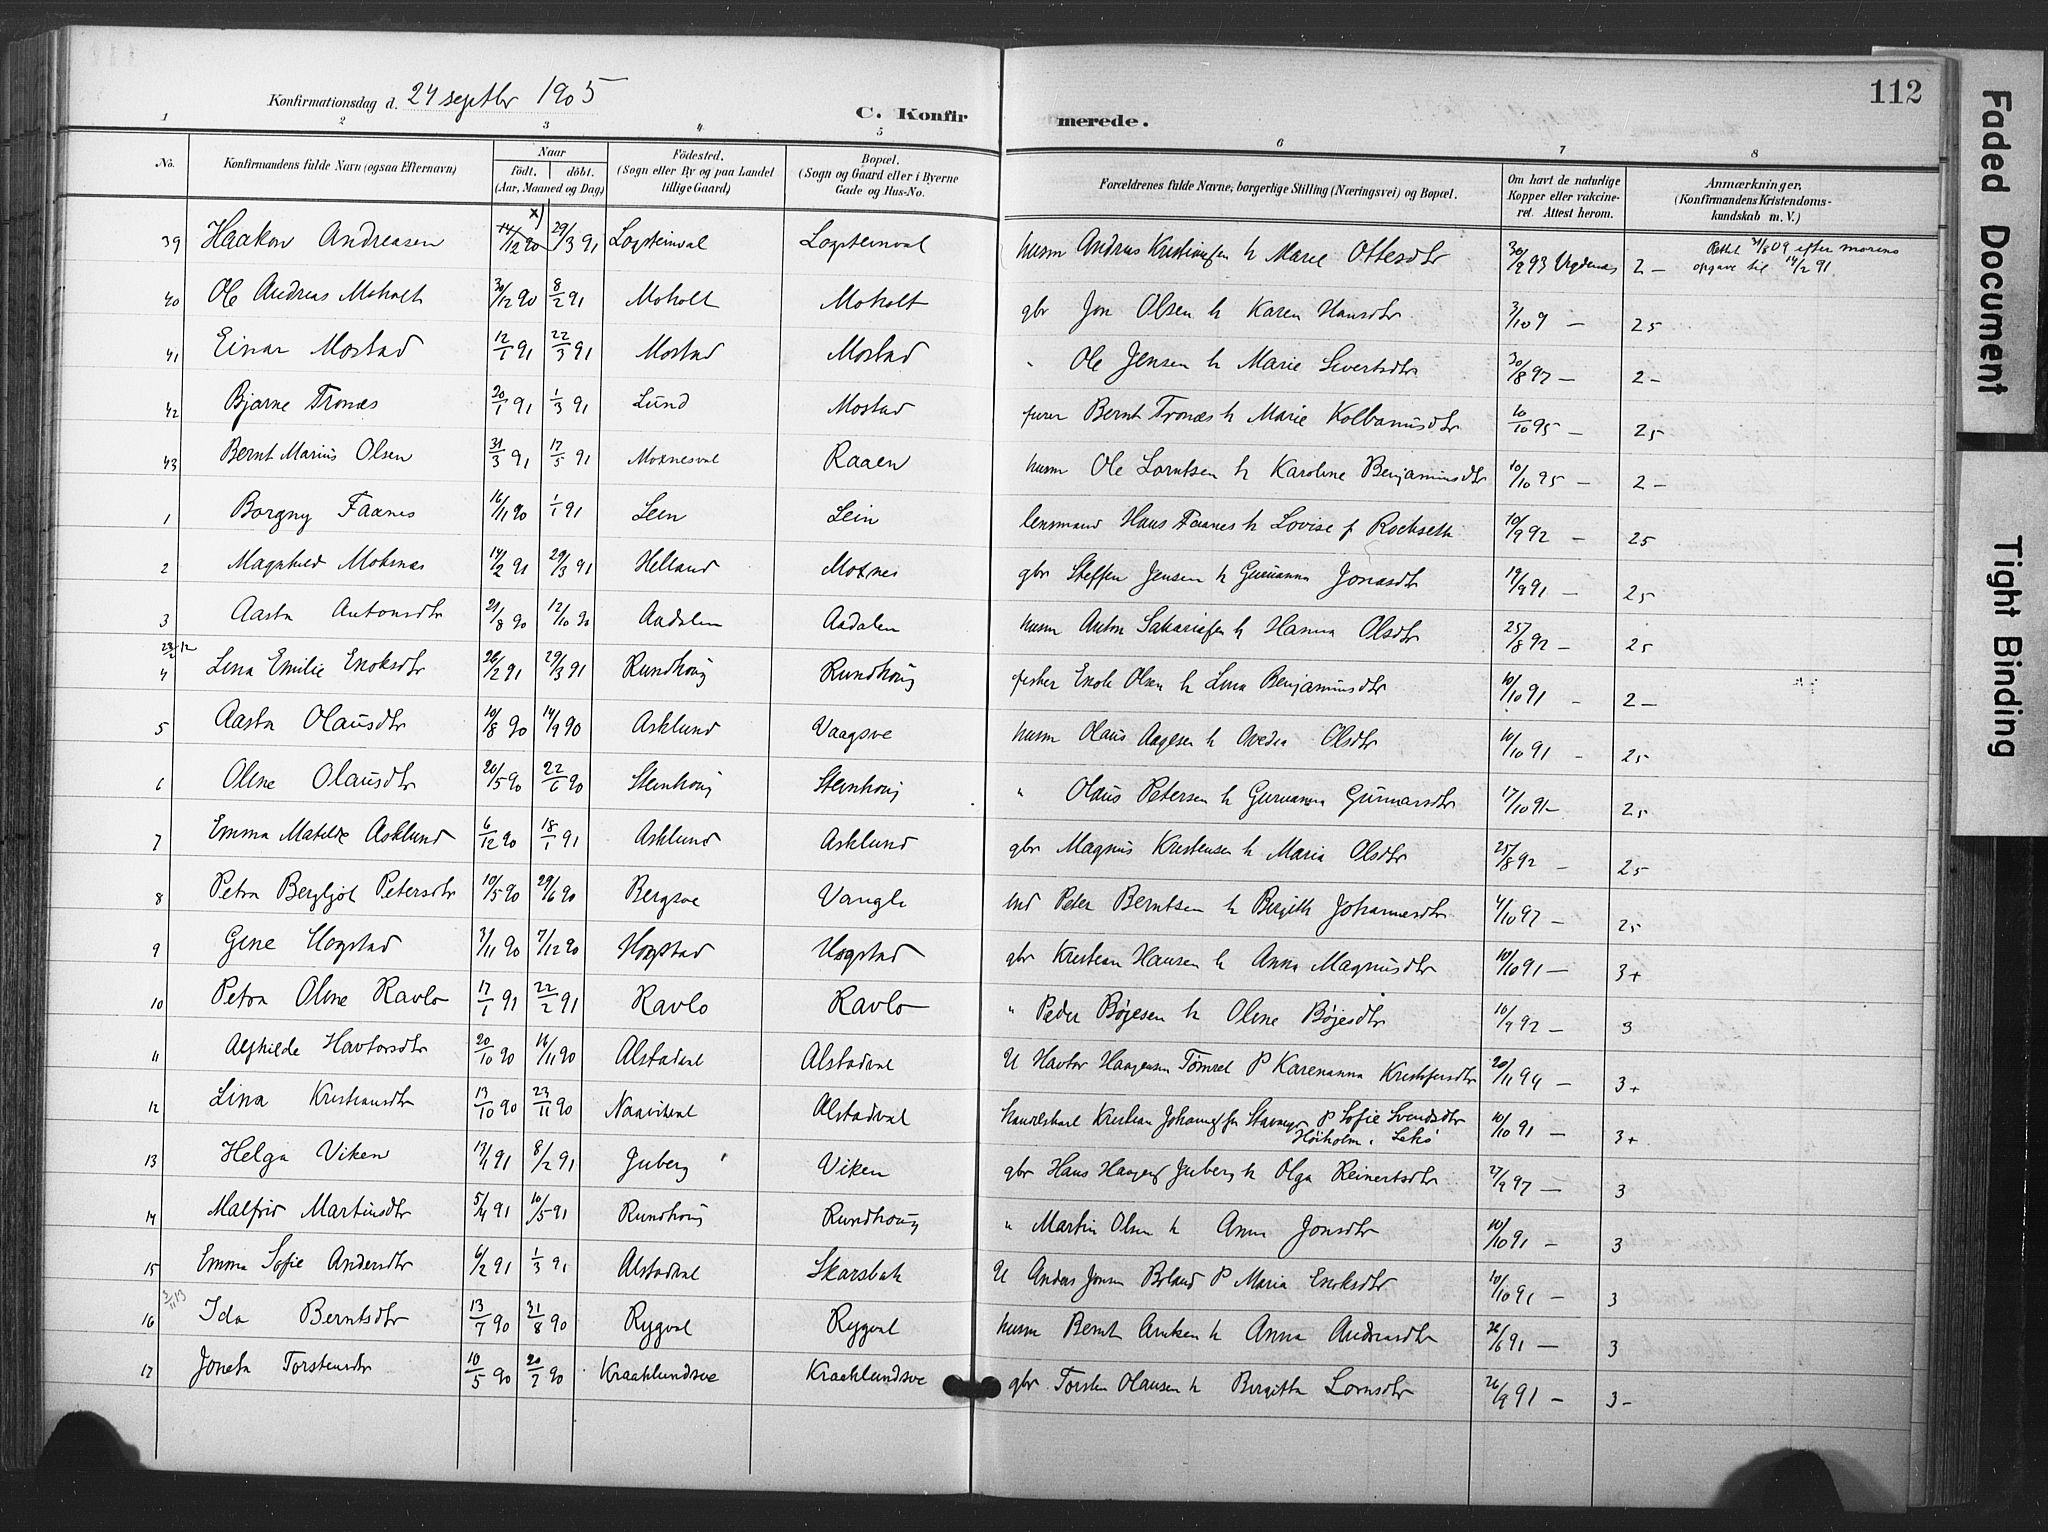 112
Konfirmationsdag d. 24 septbr 1905
C. Konfirmerede.
1 2 3 4 5 6 7 8
No. Konfirmandens fulde Navn (ogsaa Efternavn) Naar født. døbt. (Aar, Maaned og Dag) Fødested. (Sogn eller By og paa Landet tillige Gaard) Bopæl. (Sogn og Gaard eller i Byerne Gade og Hus-No. Forældrenes fulde Navne, borgerlige Stilling (Næringsvei) og Bopæl. Om havt de naturlige Kopper eller vakcineret. Attest herom. Anmærkninger. (Konfirmandens Kristendomskundskab m. V.)
39 Haakon Andreasen 14/12 90 x) 29/3 91 husm Andreas h Marie Ottesdtr 30/9 93 2 - Rettet 31/8 09 efter morens opgave til 14/2 91
40 Ole Andreas Moholt 30/12 90 8/2 91 Moholt Moholt gbr Jon Olsen h Karen Hansdtr 3/10 9 - 25
41 Einar Mostad 12/1 91 22/3 91 Mostad Mostad " Ole Jensen h Marie Sivertsdtr 30/8 97 - 2 -
42 Bjarne Tronæs 20/1 91 1/3 91 Lund Mostad furer Bernt Tronæs h Marie 10/10 95 - 25
43 Bernt Marius Olsen 31/3 91 17/5 91 Moxnesval Raaen husm Ole Lorntsen h Karoline Benjaminsdtr 10/10 95 - 2 -
1 Borgny Faanes 16/11 90 1/1 91 Lein Lein lensmand Hans Faanes h Lovise f 10/9 92 - 25
2 Magnhild Moxnes 14/2 91 29/3 91 Helland Moxnes gbr Steffen Jensen h Gurianna Jonasdtr 19/9 91 - 25
3 Aasta Antonsdtr 21/8 90 12/10 90 Aadalen Aadalen husm Anton Sakariasen h Hanna Olsdtr 25/8 92 - 25
4 Lina Emilie Enoksdtr 26/2 91 29/3 91 Rundhoug Rundhoug fisker Enok Olsen h Lina Benjaminsdtr 10/10 91 - 2 -
5 Aasta Olausdtr 10/8 90 14/9 90 Asklund Vaagsve husm Olaus Aagesen h Ovedia Olsdtr 10/10 91 - 25
6 Oline Olausdtr 20/5 90 22/6 90 Stenhoug Stenhoug " Olaus Petersen h Gurianna Gunnarsdtr 17/10 91 - 25
7 Emma Matilde Asklund 6/12 90 18/1 91 Asklund Asklund gbr Magnus Kristensen h Maria Olsdtr 25/8 92 - 25
8 Petra Bergljot Petersdtr 10/5 90 29/6 90 Bergsve Vangli ind Peter Berntsen h Birgith Johannesdtr 4/10 97 - 25
9 Gine Hogstad 3/11 90 7/12 90 Hogstad Hogstad gbr Kristian Hansen h Anna Magnusdtr 10/10 91 - 3+
10 Petra Oline Ravlo 17/1 91 22/2 91 Ravlo Ravlo " Peder Bøjesen h Oline Bøjesdtr 10/9 92 - 3
11 Alfhilde Havtorsdtr 20/10 90 16/11 90 Alstadval Alstadval U Havtor Haagensen Tømret P Karenanna Kristofersdtr 20/11 94 - 3+
12 Lina Kristiansdtr 13/10 90 23/11 90 Alstadval handelskarl Kristian P Sofie Svendsdtr 10/10 91 - 3+
13 Helga Viken 17/1 91 8/2 91 Juberg Viken gbr Hans Juberg h Olga Reinertsdtr 27/9 97 - 3
14 Malfrid Martinsdtr 5/4 91 10/5 91 Rundhoug Rundhoug " Martin Olsen h Anna Jonsdtr 10/10 91 - 3
15 Emma Sofie Andersdtr 6/2 91 1/3 91 Alstadval Skarsbak U Anders Jonsen P Maria Enoksdtr 10/10 91 - 3
16 Ida Berntsdtr 13/7 90 31/8 90 Rygval Rygval husm Bernt h Anna Andreasdtr 26/6 91 - 3
17 Joneta Torstensdtr 10/5 90 20/7 90 Kraaklundsve Kraaklundsve gbr Torsten Olausen h Birgitta 26/9 91 - 3 -
Faded Document
Tight Binding